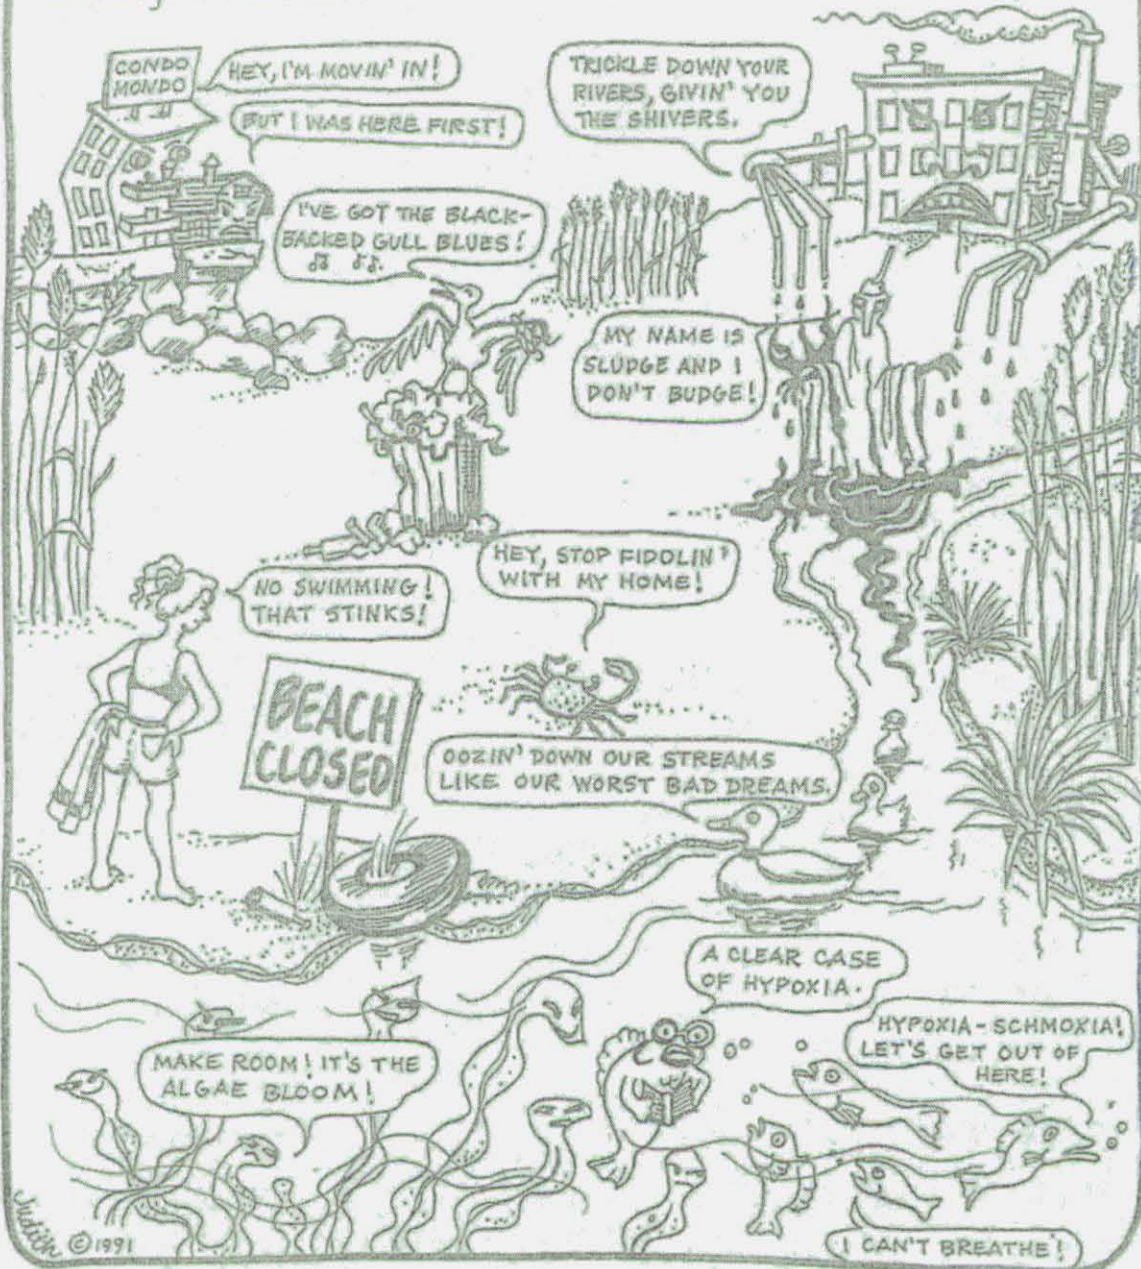 CONDO
MONDO
HEY, I'M MOVIN' IN!
BUT I WAS HERE FIRST!
TRICKLE DOWN YOUR
RIVERS, GIVIN' YOU
THE SHIVERS.
I'VE GOT THE BLACK-
BACKED GULL BLUES!
MY NAME IS
SLUDGE AND I
DON'T BUDGE!
NO SWIMMING!
THAT STINKS!
HEY, STOP FIDDLIN'
WITH MY HOME!
BEACH
CLOSED
OOZIN' DOWN OUR STREAMS
LIKE OUR WORST BAD DREAMS.
A CLEAR CASE
OF HYPOXIA.
HYPOXIA-SCHMOXIA!
LET'S GET OUT OF
HERE!
MAKE ROOM! IT'S THE
ALGAE BLOOM!
I CAN'T BREATHE!
Judith ©1991